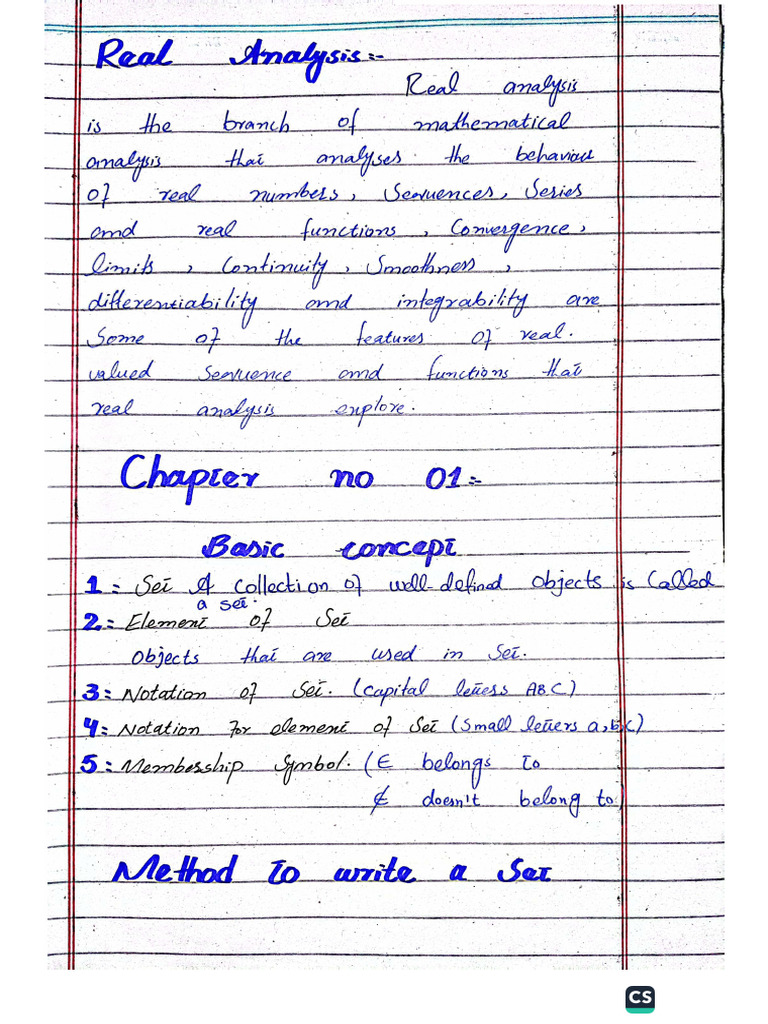 Real Analysis:-
Real analysis
is the branch of mathematical
analysis that analyses the behaviour
of real numbers, Sequences, Series
and real functions, Convergence,
limits, Continuity, Smoothness,
differentiability and integrability are
Some of the features of real.
valued sequence and functions that
real analysis explore.
Chapter no 01:-
Basic concept
1:- Set A collection of well-defined objects is called
a set.
2:- Element of Set
Objects that are used in Set.
3:- Notation of Set. (Capital letters ABC)
4:- Notation for element of Set (Small letters a,b,c)
5:- Membership Symbol. (∈ belongs to
∉ doesn't belong to)
Method to write a Set
CS